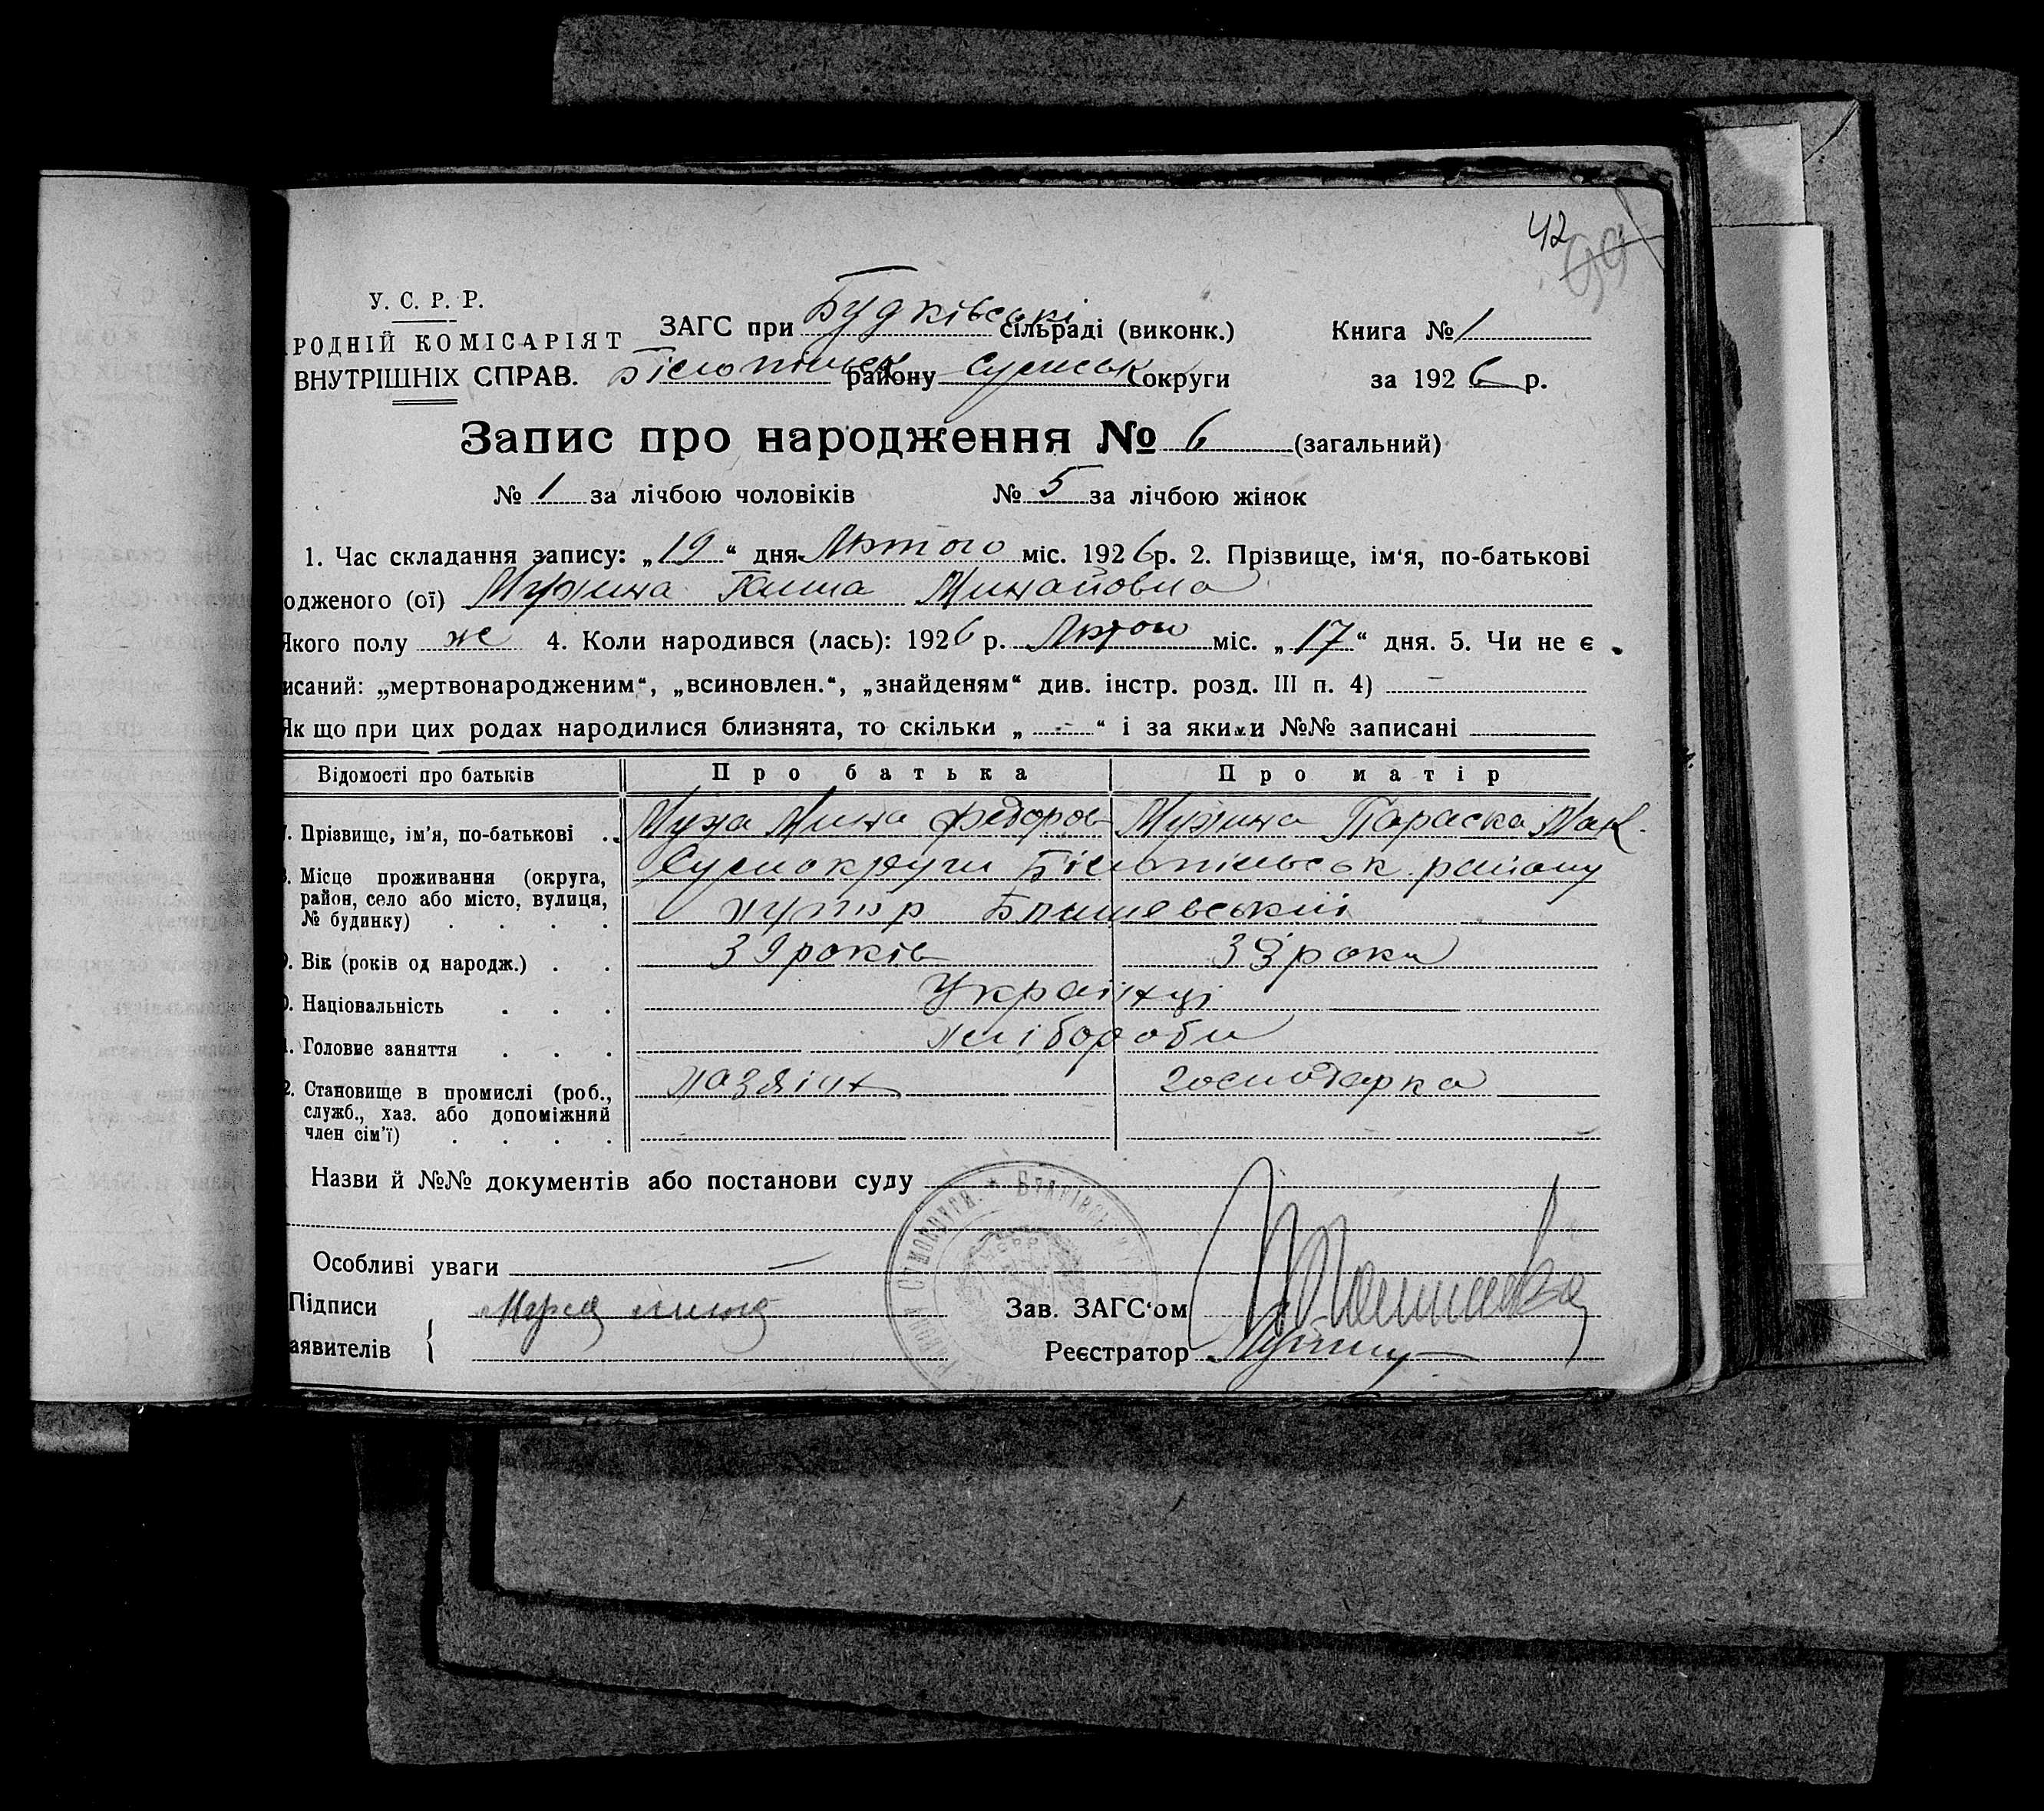 42
99
У. С. Р. Р.
РОДНІЙ КОМІСАРІЯТ
ВНУТРІШНІХ СПРАВ.
ЗАГС при Будківські сільраді (виконк.)
Білопільск району Сумськ округи
Книга № 1
за 1926 р.
Запис про народження № 6 (загальний)
№ 1 за лічбою чоловіків № 5 за лічбою жінок
1. Час складання запису: „19“ дня Лютого міс. 1926 р. 2. Прізвище, ім‘я, по-батькові
одженого (ої) Мухина Ганна Михайовна
Якого полу же 4. Коли народився (лась): 1926 р. Лютого міс. „17“ дня. 5. Чи не є
исаний: „мертвонародженим“, „всиновлен.“, „знайденям“ див. інстр. розд. III п. 4) —
Як що при цих родах народилися близнята, то скільки „ - “ і за якими №№ записані
Відомості про батьків Про батька Про матір
7. Прізвище, ім’я, по-батькові . . Муха Миха Федоров Мухина Параска Мак.
8. Місце проживання (округа, Сумокруги Білопільськ району
район, село або місто, вулиця, хутор
№ будинку) . . . .
9. Вік (років од народж.) . . 39 років 33 роки
0. Національність . . . Українці
1. Головне заняття . . . хлібороби
2. Становище в промислі (роб., хазяїн господарка
служб., хаз. або допоміжний
член сім’ї) . . . .
Назви й №№ документів або постанови суду
Особливі уваги —
Підписи
аявителів {
Зав. ЗАГС‘ом
Реєстратор